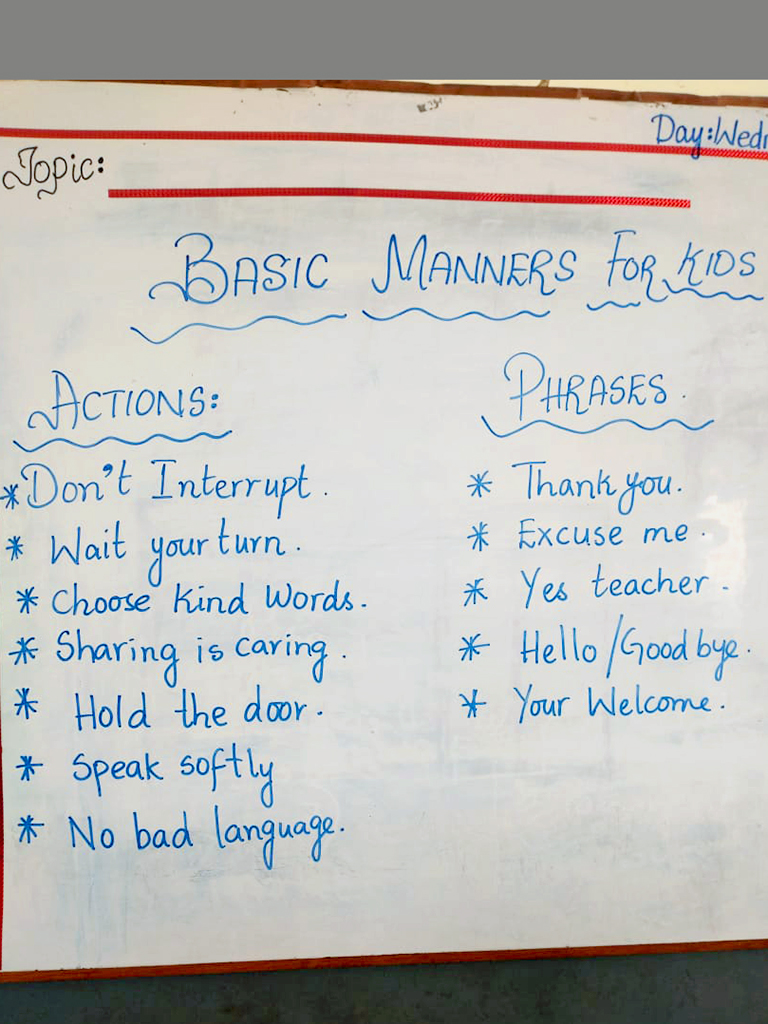 Day:Wedn
Topic:
BASIC MANNERS FOR KIDS
ACTIONS:
* Don't Interrupt.
* Wait your turn.
* Choose Kind Words.
* Sharing is caring.
* Hold the door.
* Speak softly
* No bad language.
PHRASES.
* Thank you.
* Excuse me.
* Yes teacher.
* Hello/Good bye.
* Your Welcome.